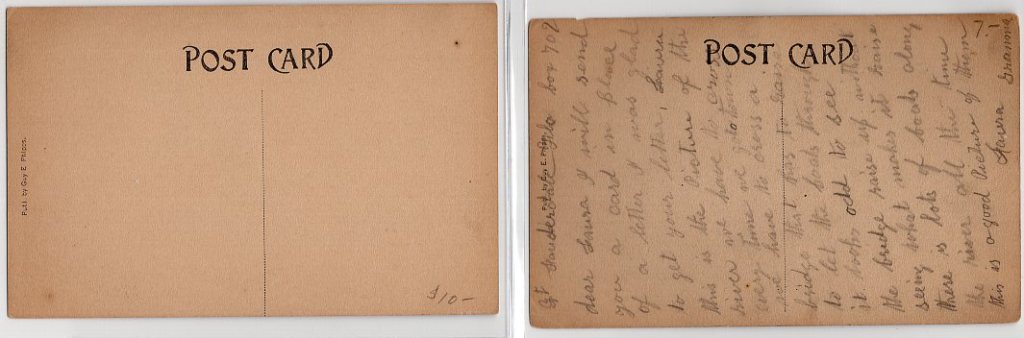 POST CARD
Publ. by Guy E. Phipps.
$10-
POST CARD
Ft Lauderdale Fla box 709
dear Laura I will send
you a card in place
of a letter I was glad
to get your letter, Laura
this is the Picture of the
river we have to cross
every time we go to town
we have to cross a
bridge that has to raise
to let the boats through
it looks odd to see
the bridge raise up without
seeing what makes it raise
there is lots of boats along
the river all the time
this is a good Picture of them
Laura Gramma